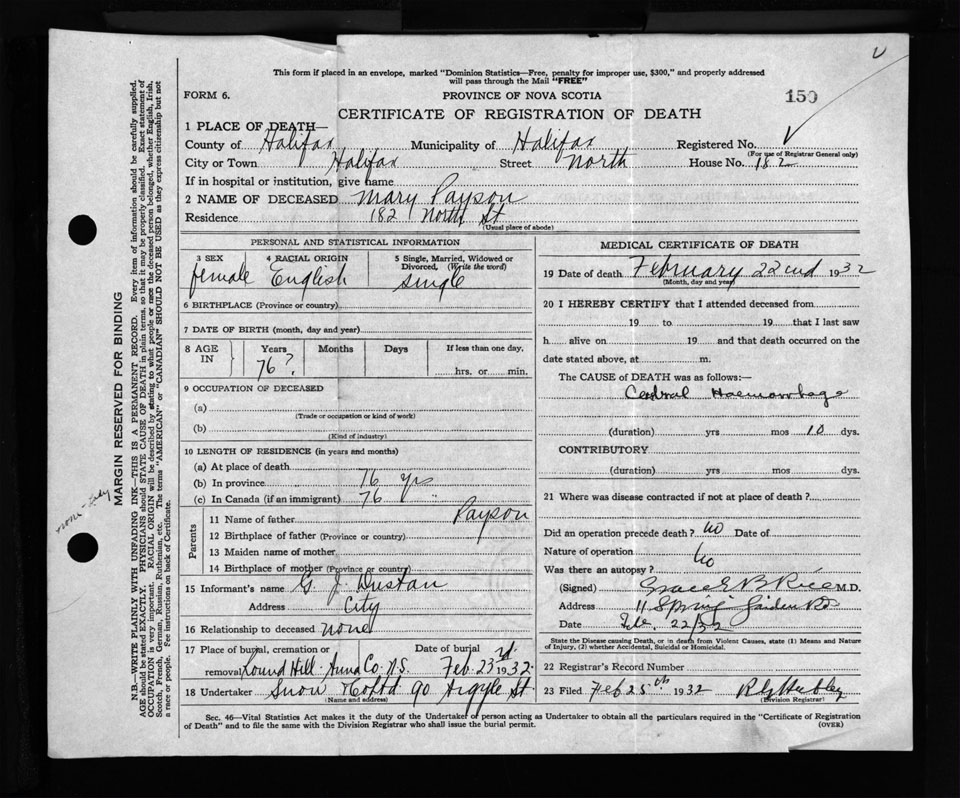 This form if placed in an envelope, marked "Dominion Statistics—Free, penalty for improper use, $300," and properly addressed
will pass through the Mail "FREE"
FORM 6.
PROVINCE OF NOVA SCOTIA
150
CERTIFICATE OF REGISTRATION OF DEATH
1 PLACE OF DEATH—
County of Halifax Municipality of Halifax Registered No.
(For use of Registrar General only)
City or Town Halifax Street North House No. 182
If in hospital or institution, give name
2 NAME OF DECEASED Mary Payson
Residence 182 North St
(Usual place of abode)
PERSONAL AND STATISTICAL INFORMATION
3 SEX 4 RACIAL ORIGIN 5 Single, Married, Widowed or
Divorced, (Write the word)
female English single
6 BIRTHPLACE (Province or country)
7 DATE OF BIRTH (month, day and year)
8 AGE IN Years Months Days If less than one day,
76? hrs. or min.
9 OCCUPATION OF DECEASED
(a)
(Trade or occupation or kind of work)
(b)
(Kind of industry)
10 LENGTH OF RESIDENCE (in years and months)
(a) At place of death
(b) In province 76 yrs
(c) In Canada (if an immigrant) 76 "
Parents
11 Name of father Payson
12 Birthplace of father (Province or country)
13 Maiden name of mother
14 Birthplace of mother (Province or country)
15 Informant's name G. J. Dustan
Address City
16 Relationship to deceased none
17 Place of burial, cremation or Date of burial
removal Round Hill Anna Co. N.S. Feb. 23rd 1932.
18 Undertaker Snow & Co Ltd 90 Argyle St.
(Name and address)
MEDICAL CERTIFICATE OF DEATH
19 Date of death February 22nd 1932
(Month, day and year)
20 I HEREBY CERTIFY that I attended deceased from
19 to 19 that I last saw
h alive on 19 and that death occurred on the
date stated above, at m.
The CAUSE of DEATH was as follows:—
Cerebral Haemorrhage
(duration) yrs mos 10 dys.
CONTRIBUTORY
(duration) yrs mos dys.
21 Where was disease contracted if not at place of death?
Did an operation precede death? No Date of
Nature of operation
Was there an autopsy? No
(Signed) Grace E B Rice M.D.
Address 11 Spring Garden Rd
Date Feb. 22/32
State the Disease causing Death, or in death from Violent Causes, state (1) Means and Nature
of Injury, (2) whether Accidental, Suicidal or Homicidal.
22 Registrar's Record Number
23 Filed Feb 25th 1932
(Division Registrar)
Sec. 46—Vital Statistics Act makes it the duty of the Undertaker or person acting as Undertaker to obtain all the particulars required in the "Certificate of Registration
of Death" and to file the same with the Division Registrar who shall issue the burial permit.
(OVER)
MARGIN RESERVED FOR BINDING
N.B.—WRITE PLAINLY WITH UNFADING INK—THIS IS A PERMANENT RECORD. Every item of information should be carefully supplied.
AGE should be stated EXACTLY. PHYSICIANS should STATE CAUSE OF DEATH in plain terms, so that it may be properly classified. Exact statement of
OCCUPATION is very important. RACIAL ORIGIN will be described by stating to what people or race the deceased person belonged, whether English, Irish,
Scotch, French, German, Russian, Ruthenian, etc. The terms "AMERICAN" or "CANADIAN" SHOULD NOT BE USED as they express citizenship but not
a race or people. See instructions on back of Certificate.